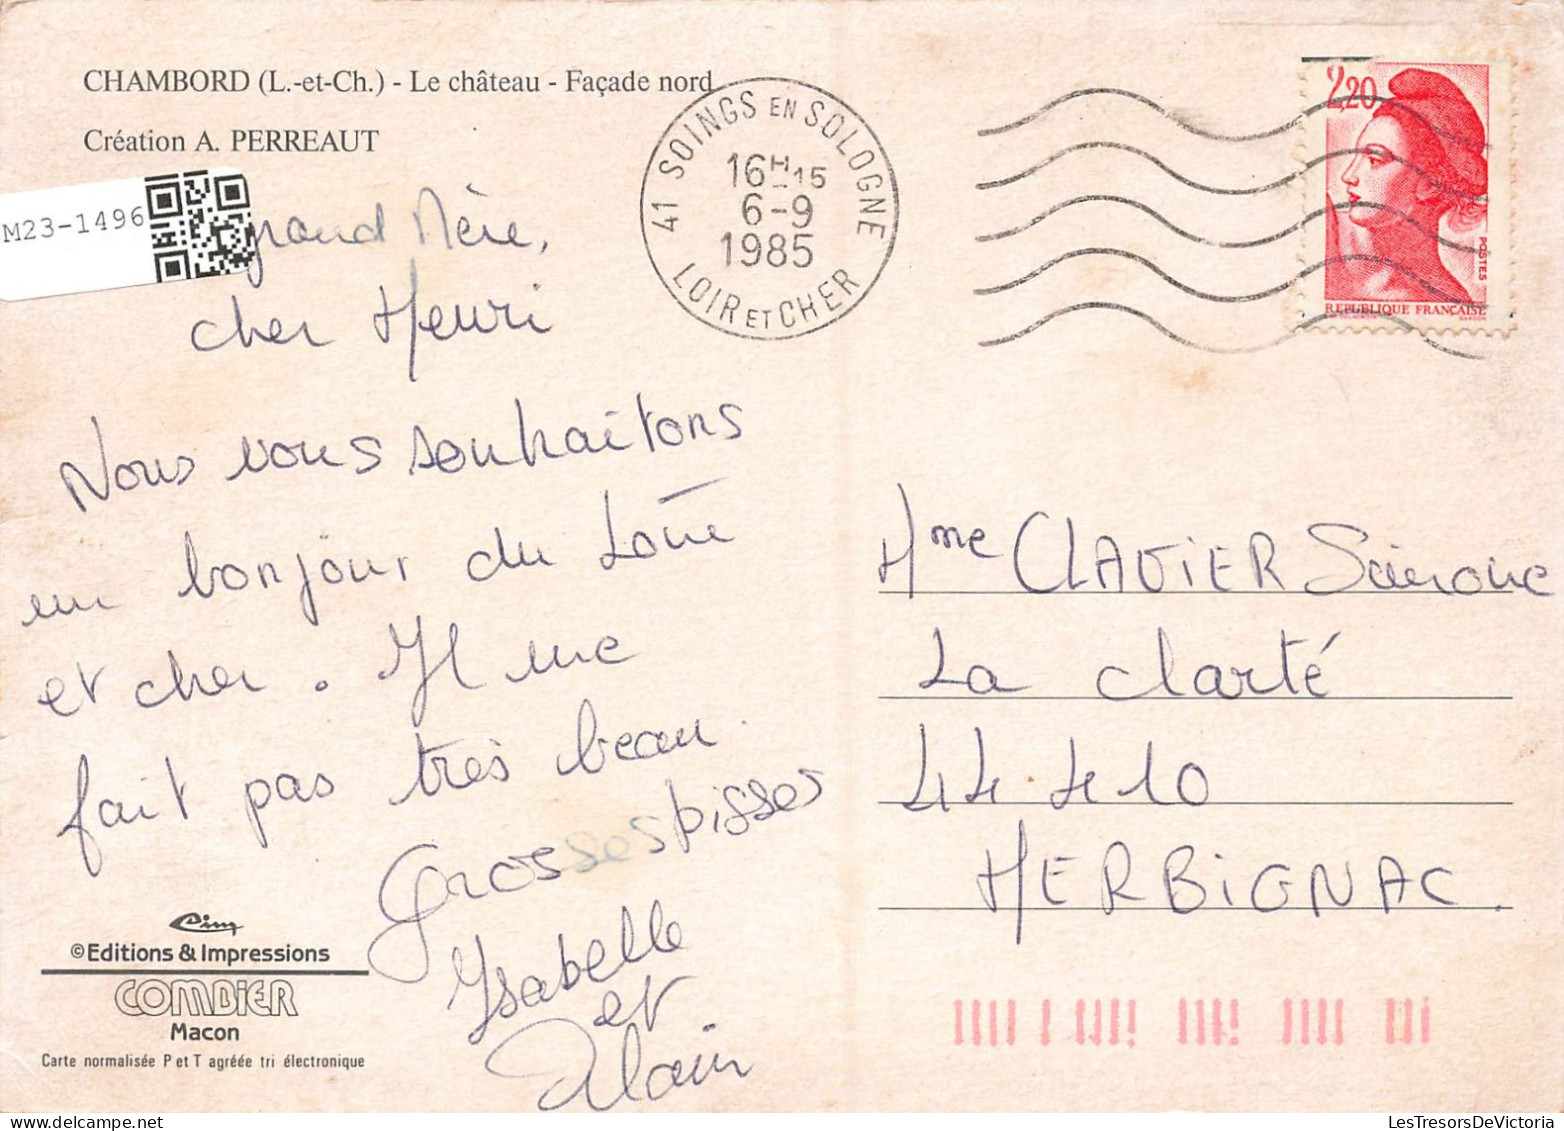 CHAMBORD (L.-et-Ch.) - Le château - Façade nord
Création A. PERREAUT
M23-1496
grand Mère,
cher Henri
Nous vous souhaitons
un bonjour du Loire
et cher. Il ne
fait pas très beau.
Grosses bisses
Isabelle
et
Alain
Cim
©Editions & Impressions
COMBIER
Macon
Carte normalisée P et T agréée tri électronique
41 SOINGS EN SOLOGNE
16H15
6-9
1985
LOIR ET CHER
2,20
POSTES
REPUBLIQUE FRANÇAISE
Mme CLAVIER Simone
La Clarté
44410
HERBIGNAC.
LesTresorsDeVictoria